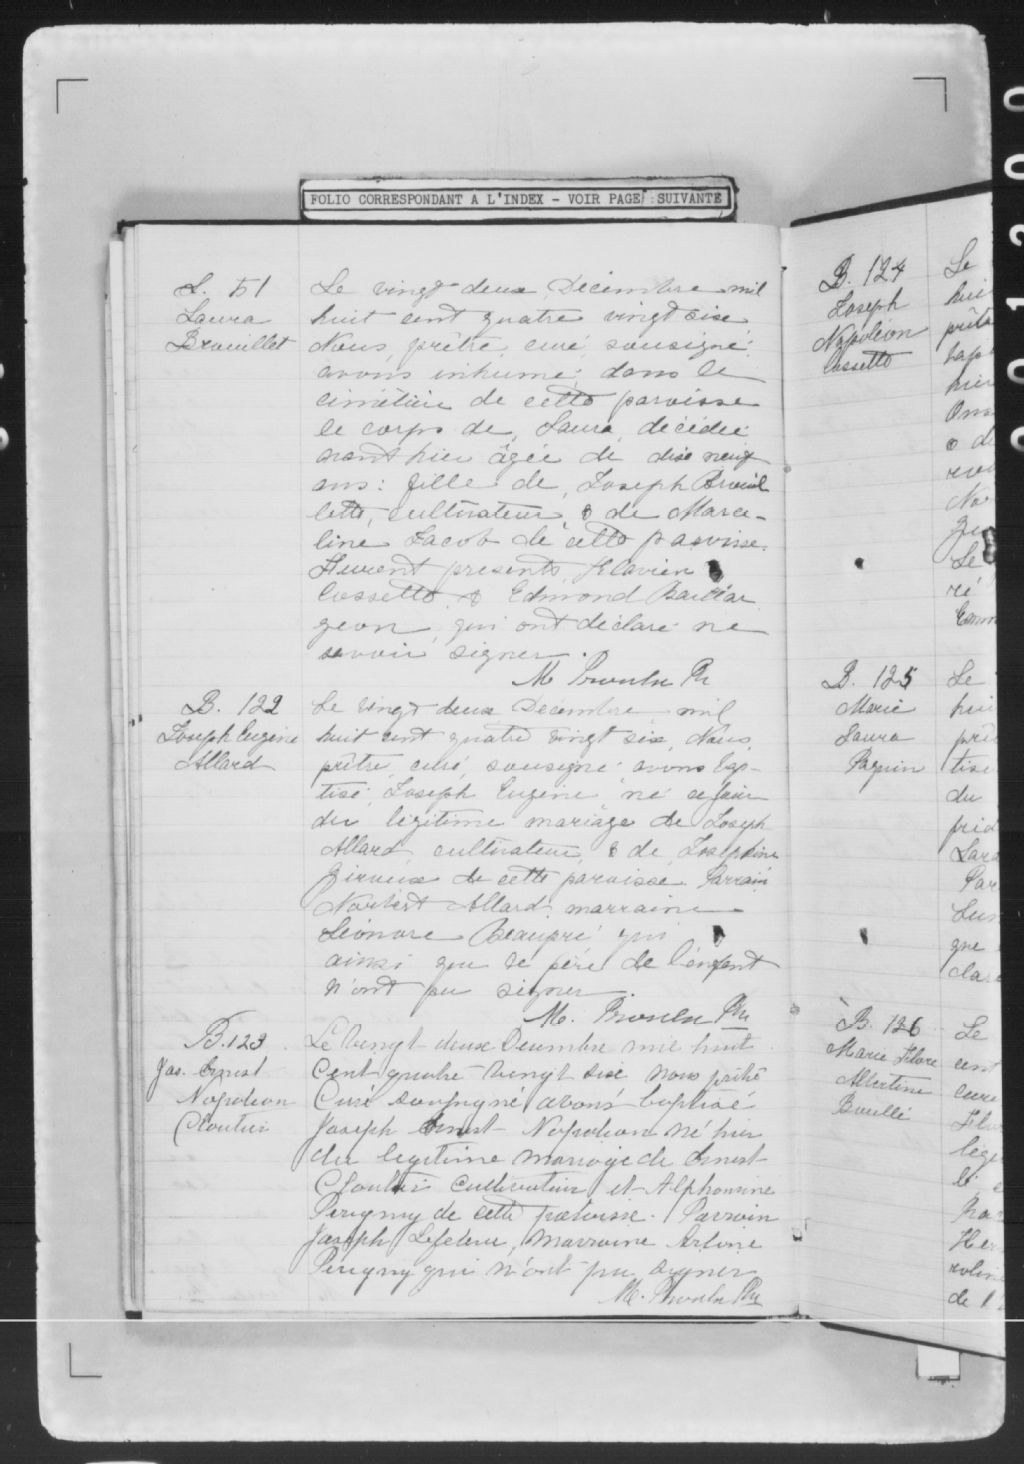 FOLIO CORRESPONDANT A L'INDEX - VOIR PAGE SUIVANTE
S. 51
Laura
Brouillet
Le vingt deux Décembre mil
huit cent quatre vingt six
Nous, prêtre, curé, sousigné
avons inhumé dans le
cimetière de cette paroisse
le corps de, Laura, décédée
avant hier âgée de dix neuf
ans: fille de, Joseph Brouil
lette, cultivateur, & de Marce-
line Jacob de cette paroisse.
Furent présents, Flavien
Cossette & Edmond Baillar
geon, qui ont déclaré ne
savoir signer.
M. Proulx Ptr
B. 122
Joseph Eugène
Allard
Le vingt deux Décembre mil
huit cent quatre vingt six, Nous,
prêtre, curé, sousigné, avons bap-
tisé, Joseph Eugène, né
du légitime mariage de Joseph
Allard, cultivateur, & de Joséphine
de cette paroisse. Parrain
Norbert Allard, marraine
Léonore Beaupré, qui
ainsi que le père de l'enfant
n'ont pu signer.
M. Proulx Ptr
B. 123
Jos. Ernest
Napoléon
Cloutier
Le vingt deux Décembre mil huit
cent quatre-vingt six nous prêtre
Curé soussigné avons baptisé
Joseph Ernest Napoléon né hier
du légitime mariage de Ernest
Cloutier cultivateur et Alphonsine
Périgny de cette paroisse. Parrain
Joseph Lefebvre, marraine
Périgny qui n'ont pu signer
M. Proulx Ptr
B. 124
Joseph
Napoléon
Cossette
Le
hui
prêtr
bap
hier
B. 125
Marie
Laura
Paquin
Le
hui
prê
tisé
du
Par
que
clar
B. 126
Marie Flore
Albertine
Le
cent
curé
lége
de l